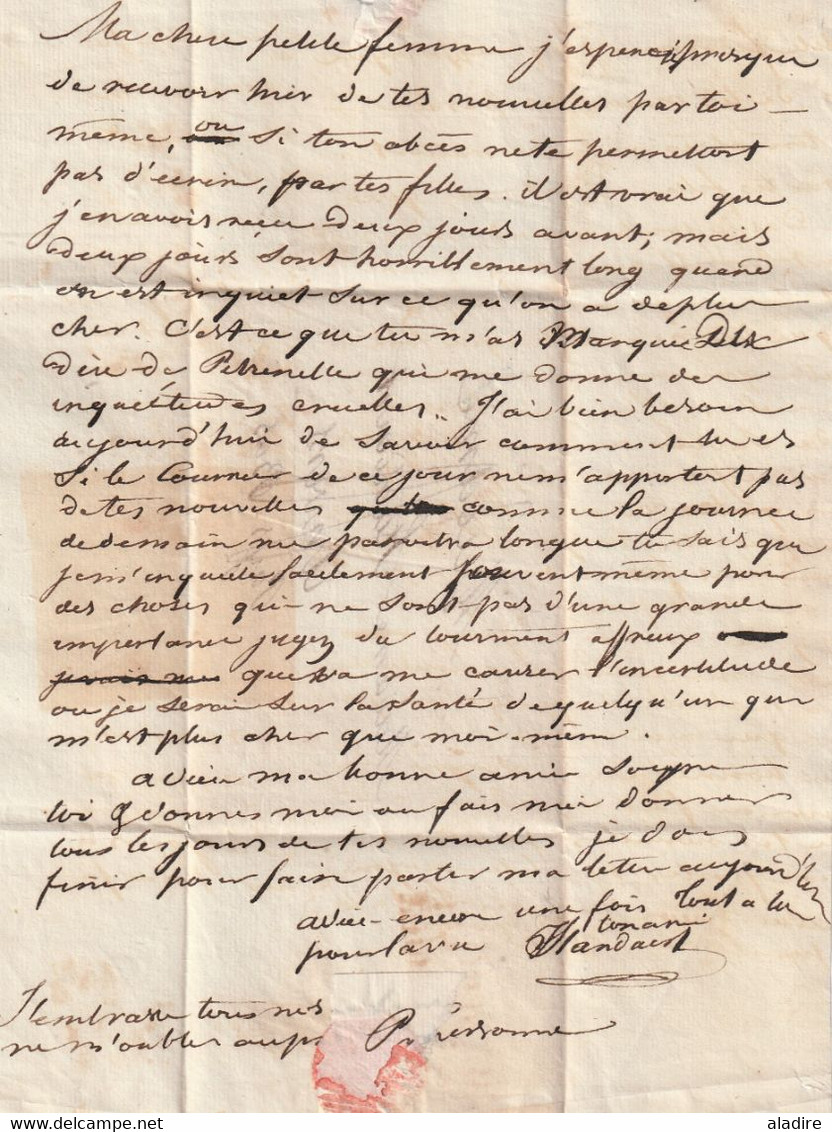 Ma chere petite femme j'esperois presque
de recevoir hier de tes nouvelles par toi
même, ou si ton abcès ne te permettoit
pas d'ecrire, par tes filles. il est vrai que
j'en avois recu deux jours avant; mais
deux jours sont horriblement long quand
on est inquiet sur ce qu'on a de plus
cher. C'est ce que tu m'as Marqué
de Petrenelle qui me donne des
inquietudes cruelles.. J'ai bien besoin
aujourd'hui de savoir comment tu es
Si le Courrier de ce jour ne m'apportoit pas
de tes nouvelles comme la journee
de demain me paroitra longue tu sais que
je m'inquiete facilement souvent même pour
des choses qui ne sont pas d'une grande
importance jugez du tourment affreux
que va me causer l'incertitude
ou je serai sur la santé de quelqu'un qui
m'est plus cher que moi-même.
adieu ma bonne amie Soigne
toi & donnes moi ou fais moi donner
tous les jours de tes nouvelles je dois
finir pour faire partir ma letre aujourd'hui
adieu encore une fois tout a toi
ton ami
pour la vie
J'embrasse tous nos
ne m'oublies aup
Delcampe.net
aladire